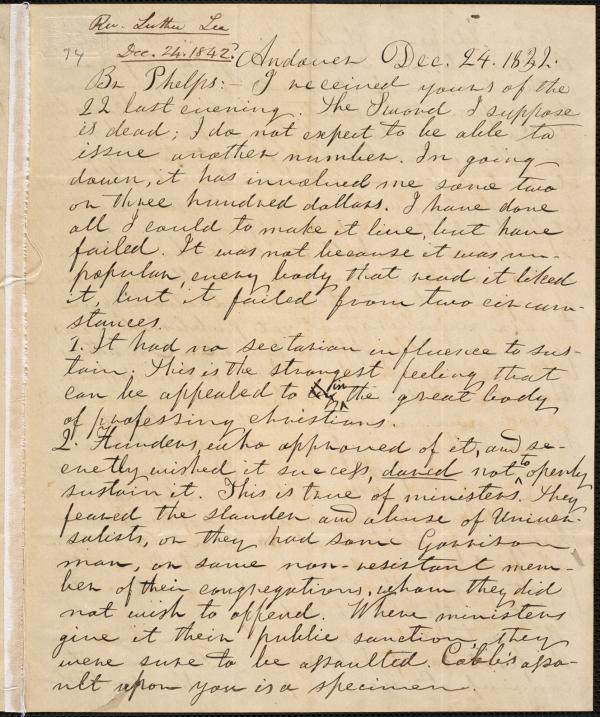 Rev. Luther Lee
Dec. 24. 1842?
74
Andover Dec. 24. 1842.
Br Phelps:— I received yours of the
22 last evening. The Sword I suppose
is dead; I do not expect to be able to
issue another number. In going
down, it has involved me some two
or three hundred dollars. I have done
all I could to make it live, but have
failed. It was not because it was un-
popular, every body that read it liked
it, but it failed from two circum-
stances.
1. It had no sectarian influence to sus-
tain. This is the strongest feeling that
can be appealed to in the great body
of professing christians.
2. Hundreds, who approved of it, and se-
cretly wished it success, dared not to openly
sustain it. This is true of ministers. They
feared the slander and abuse of Univer-
salists, or they had some Garrison
man, or some non-resistant mem-
ber of their congregations, whom they did
not wish to offend. Where ministers
give it their public sanction, they
were sure to be assaulted. Cobb's assa-
ult upon you is a specimen.